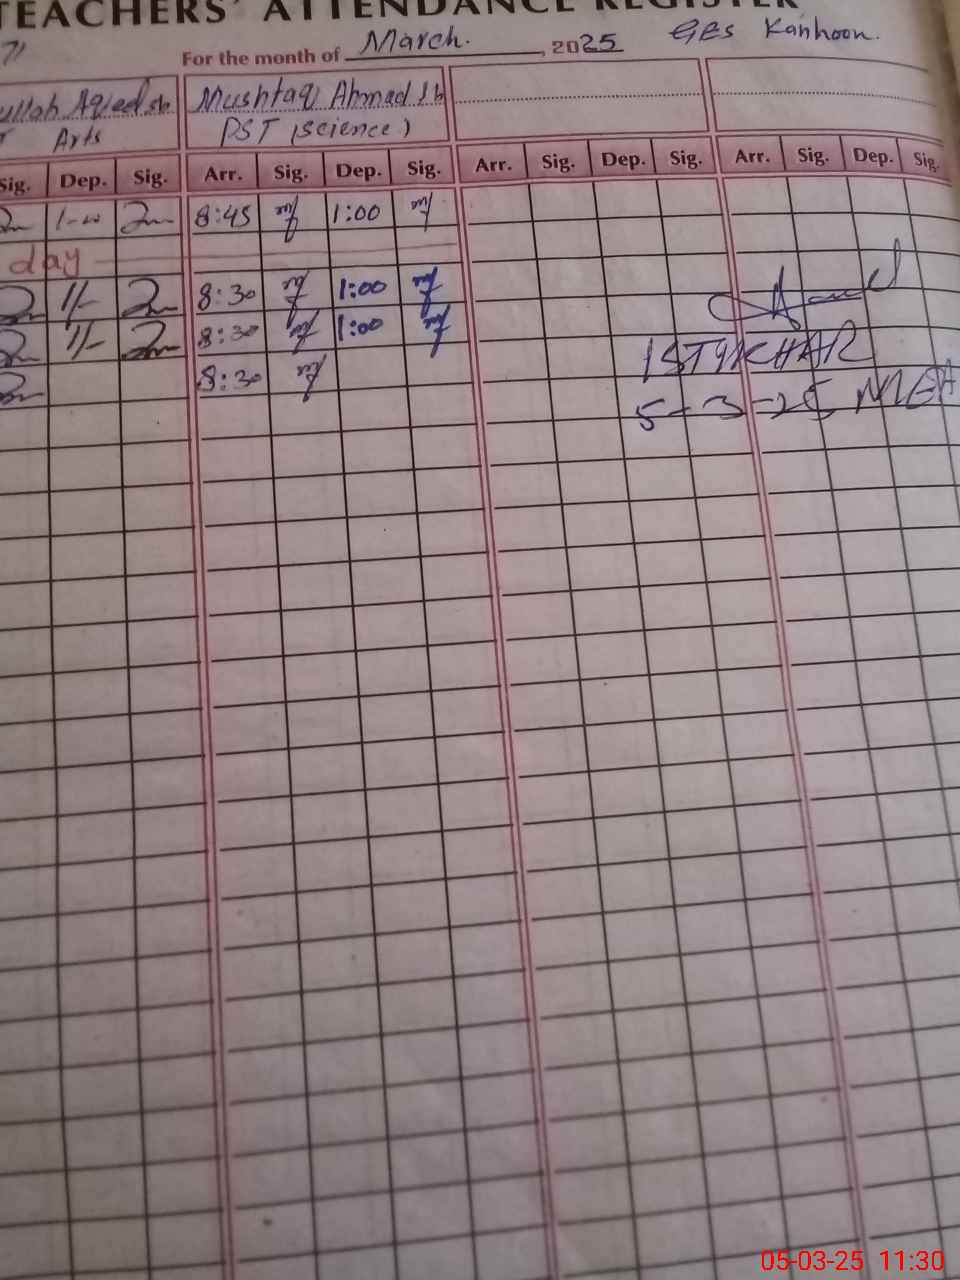 TEACHERS' ATTENDANCE REGISTER
71
For the month of March. , 2025 GES Kanhoon.
ullah Aqeed sb Mushtaq Ahmad sb
Arts PST (Science)
Sig. Dep. Sig. Arr. Sig. Dep. Sig. Arr. Sig. Dep. Sig. Arr. Sig. Dep. Sig.
1-00 8:45 1:00
day
1/- 8:30 1:00
1/- 8:30 1:00
8:30
ISTYKHAR
5-3-25 MEA
05-03-25 11:30